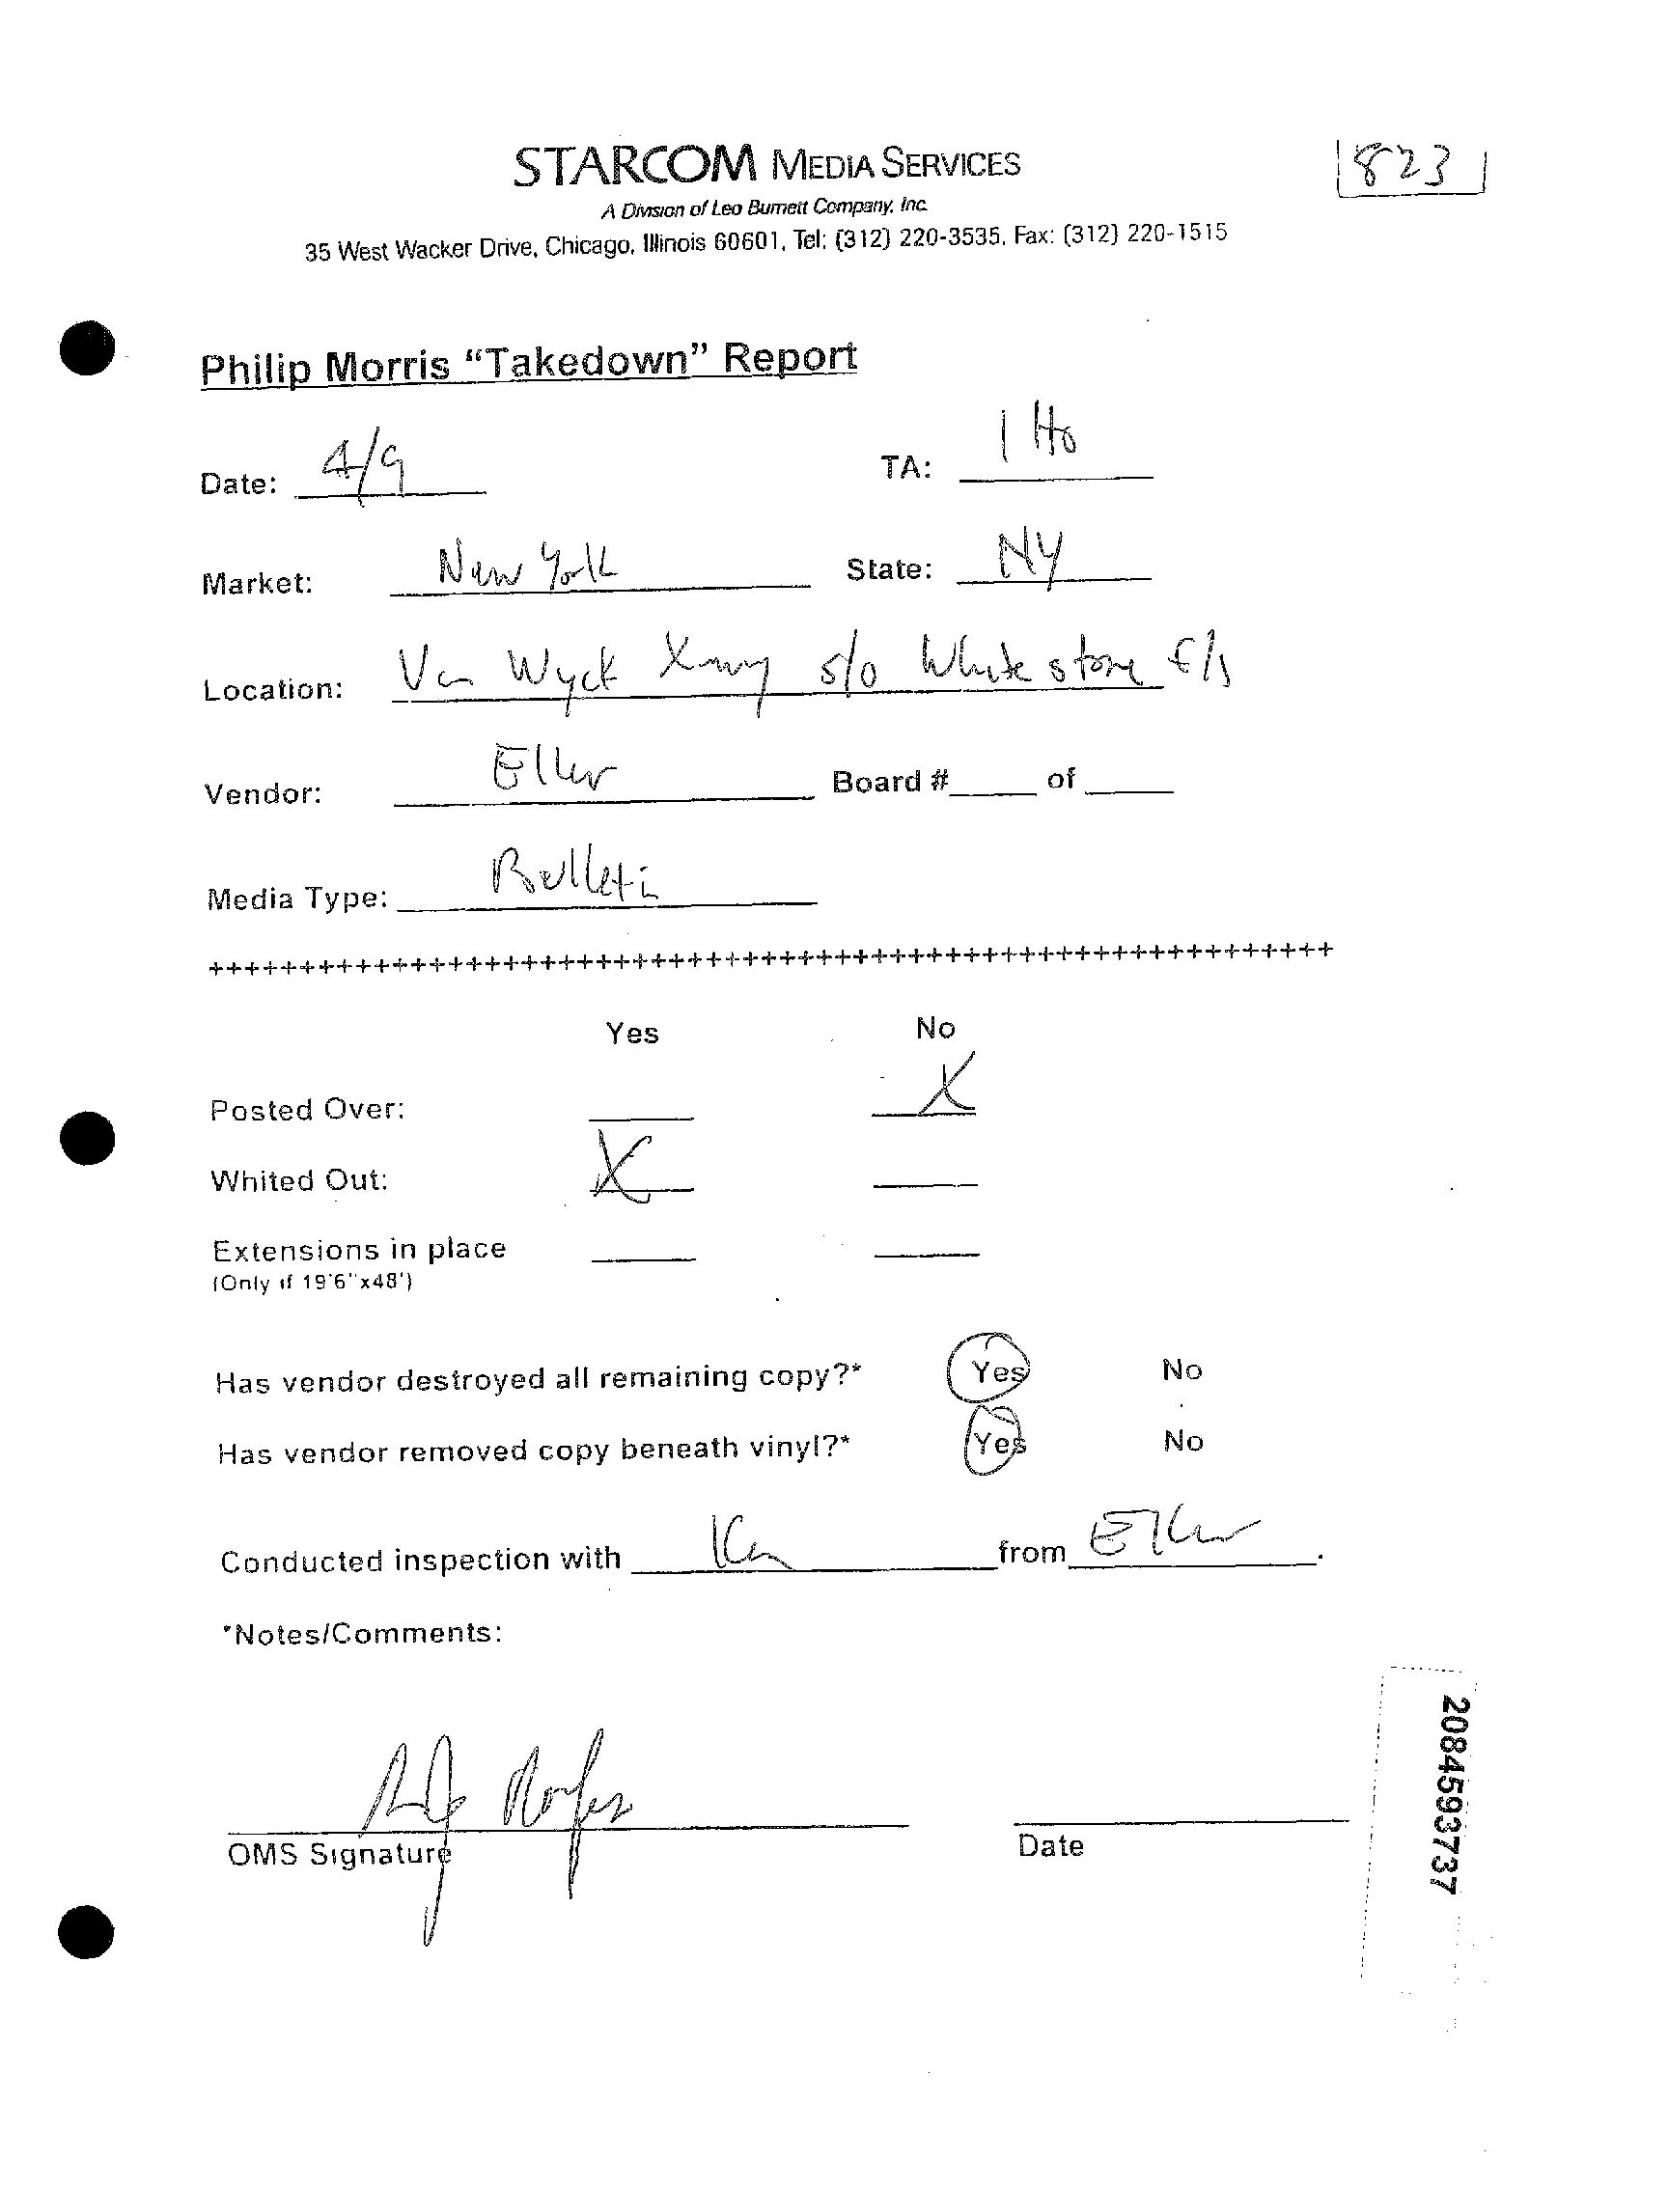 STARCOM MEDIA SERVICES
823
A Division of Leo Burnett Company, Inc.
35 West Wacker Drive, Chicago, Illinois 60601, Tel: (312) 220-3535, Fax: (312) 220-1515
Philip Morris "Takedown" Report
Date: 4/9 TA:
Market: New York State: NY
Location: Van Wyck Xway s/o Whitestone f/s
Vendor: Eller Board # of
Media Type: Bulletin
++++++++++++++++++++++++++++++++++++++++++++++++++++++++++++++
Yes No
Posted Over: X
Whited Out: X
Extensions in place
(Only if 19'6"x48')
Has vendor destroyed all remaining copy?* Yes No
Has vendor removed copy beneath vinyl?* Yes No
Conducted inspection with Ken from Eller.
*Notes/Comments:
OMS Signature Date
2084593737